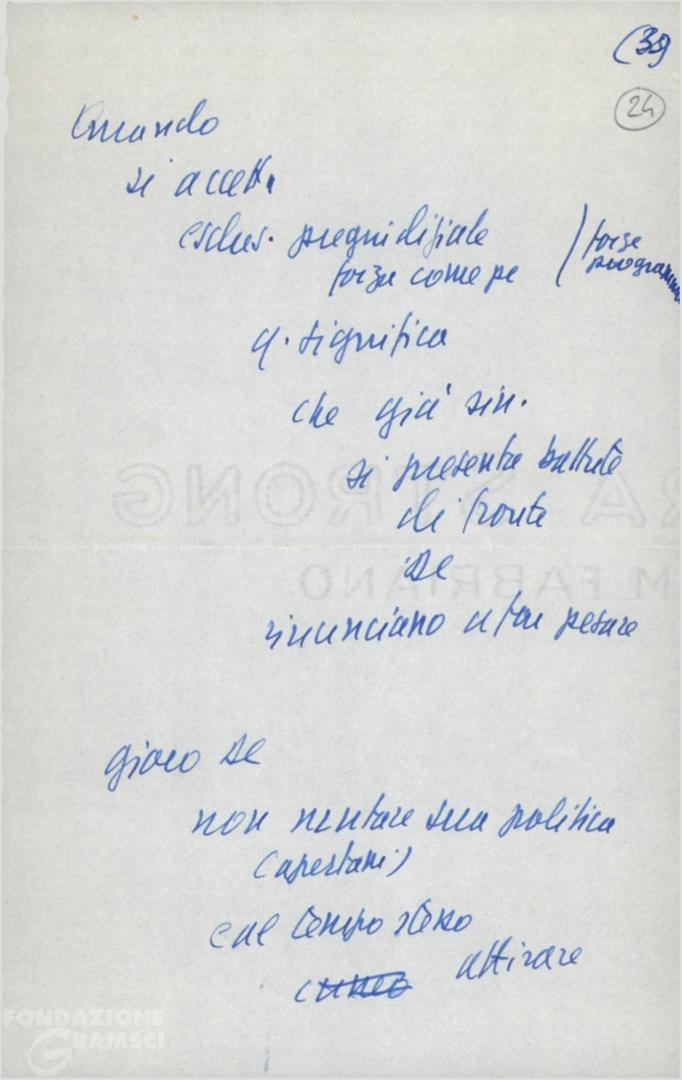 (39)
24
Quando
si accetta
esclus. pregiudiziale
forza come pc
forze
programm
q. significa
che già sin.
si presenta battuta
di fronte
DC
rinunciano a far pesare
gioco DC
non mutare sua politica
(apertami)
e al tempo stesso
attirare
RA STRONG
M FABRIANO
FONDAZIONE
GRAMSCI